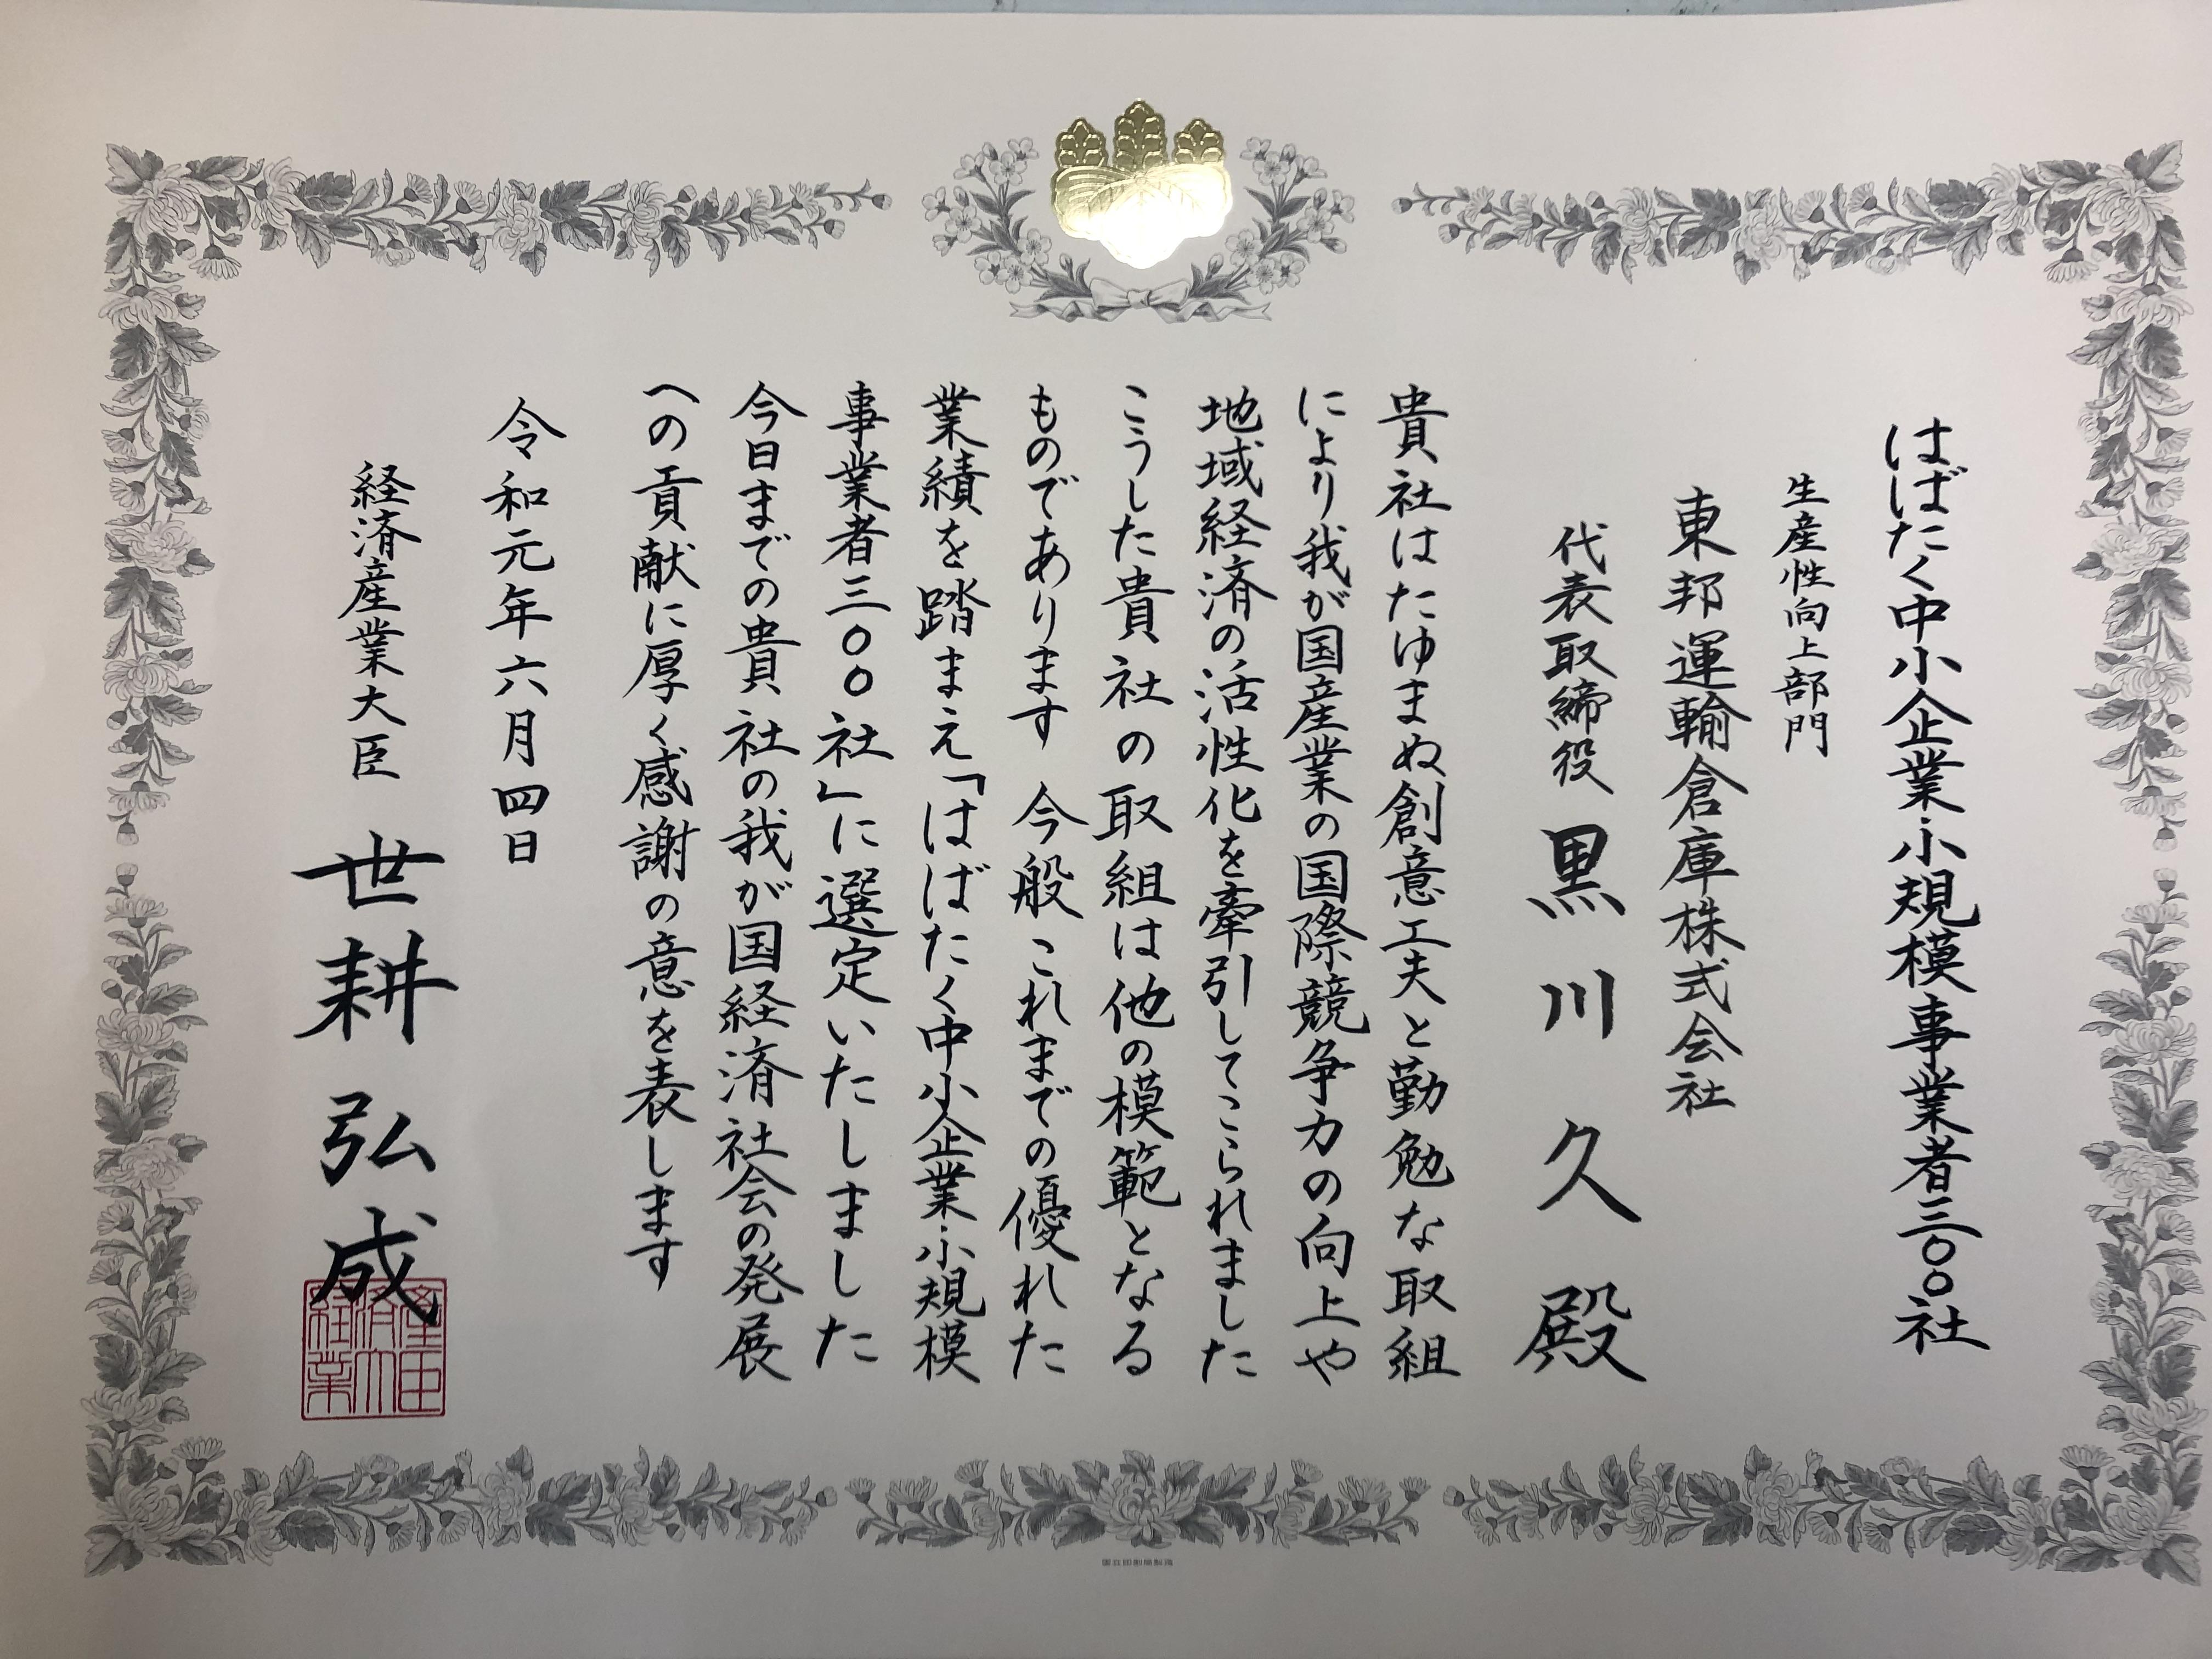 はばたく中小企業・小規模事業者三〇〇社
生産性向上部門
東邦運輸倉庫株式会社
代表取締役 黒川久殿
貴社はたゆまぬ創意工夫と勤勉な取組
により我が国産業の国際競争力の向上や
地域経済の活性化を牽引してこられました
こうした貴社の取組は他の模範となる
ものであります 今般これまでの優れた
業績を踏まえ「はばたく中小企業・小規模
事業者三〇〇社」に選定いたしました
今日までの貴社の我が国経済社会の発展
への貢献に厚く感謝の意を表します
令和元年六月四日
経済産業大臣 世耕弘成
経済産業大臣
国立印刷局製造